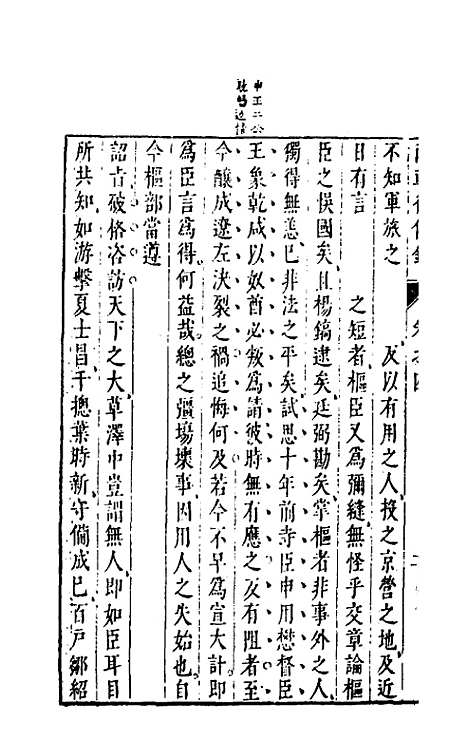 不知軍旅之　　　及以有用之人投之京營之地及近
日有言　　之短者樞臣又爲彌縫無怪乎交章論樞
臣之悞國矣且楊鎬逮矣廷弼勘矣掌樞者非事外之人
獨得無恙已非法之平矣試思十年前寺臣申用懋督臣
王象乾咸以奴酋必叛爲請彼時無有應之反有阻者至
今釀成遼左決裂之禍追悔何及若今不早爲宣大計即
爲臣言爲得何益哉總之疆場壞事因用人之失始也自
今樞部當遵
詔旨破格咨訪天下之大草澤中豈謂無人即如臣耳目
所共知如游擊夏士昌千摠葉時新守備成已百戶鄒紹
申王二公